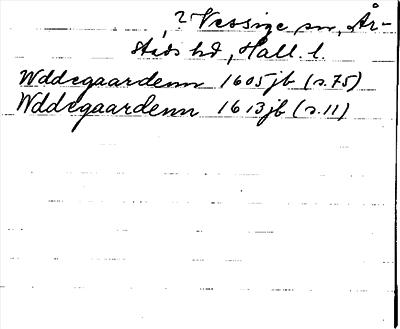 , ? Vessige sn, År-
stads hd, Hall. l.
Wddegaardenn 1605 jb (s.75)
Wddegaardenn 1613 jb (s.11)